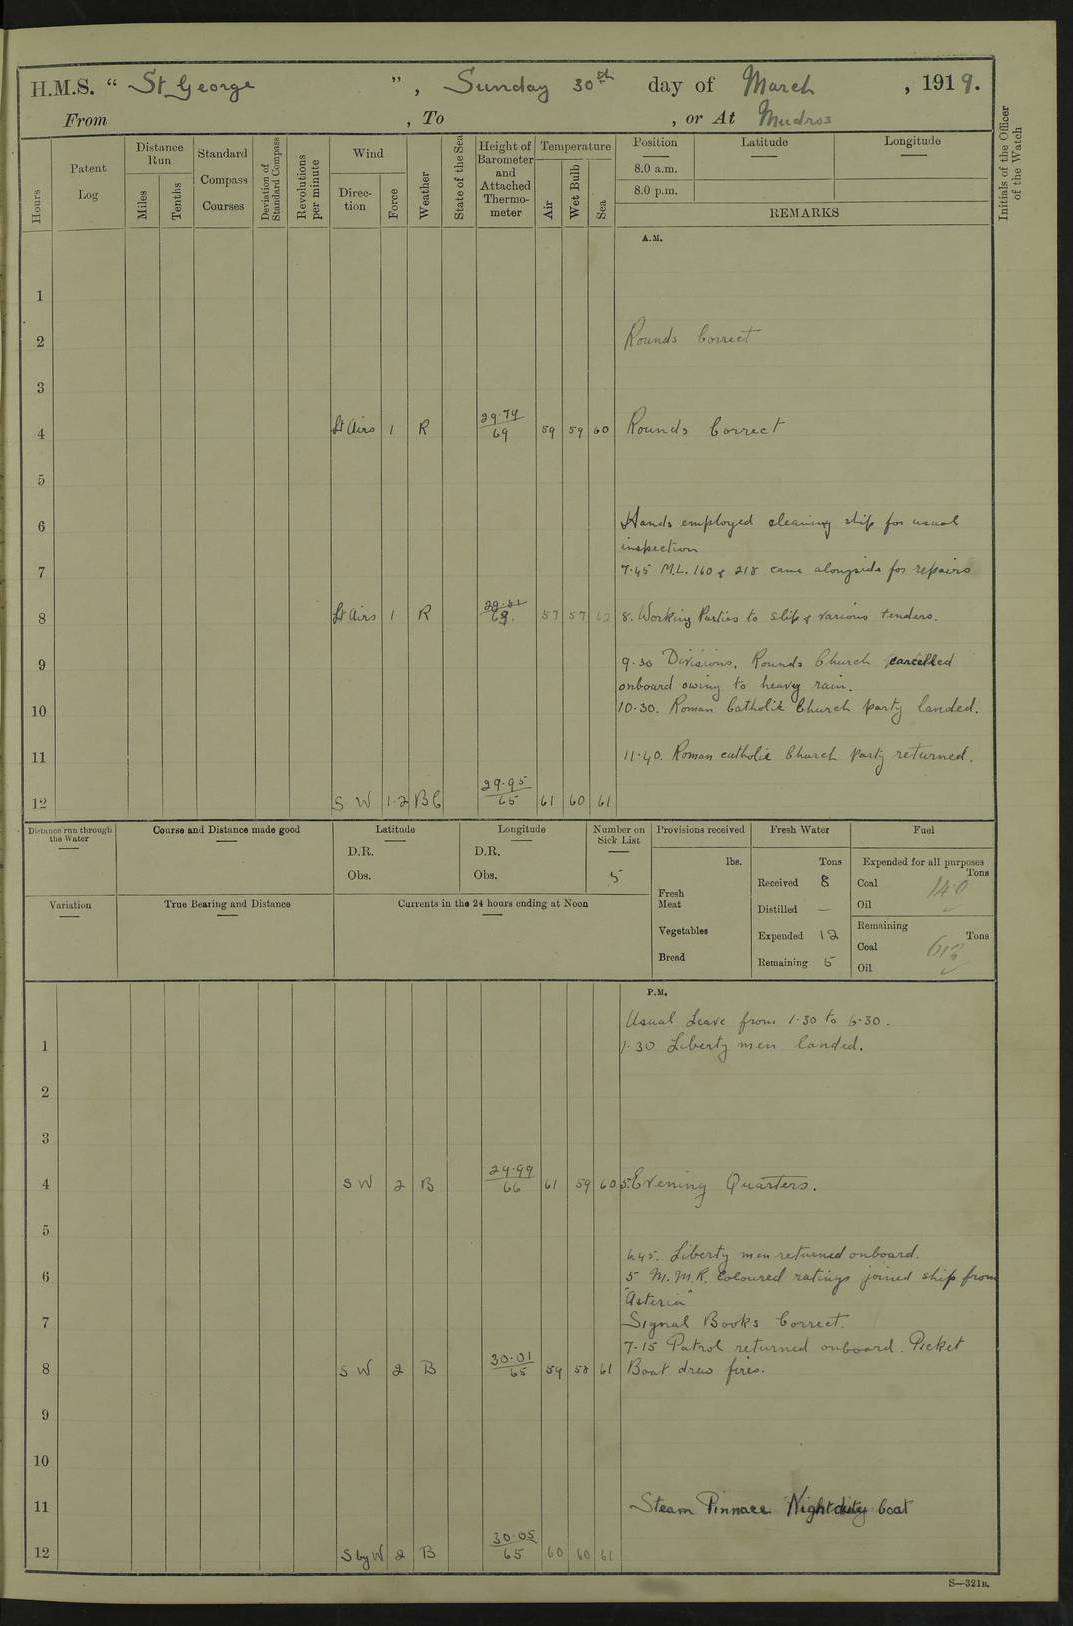 H.M.S. “ St George ” , Sunday 30th day of March , 1919.
From , To , or At Mudros
Hours
Patent Log
Distance Run
Miles
Tenths
Standard Compass Courses
Deviation of Standard Compass
Revolutions per minute
Wind
Direction
Force
Weather
State of the Sea
Height of Barometer and Attached Thermometer
Temperature
Air
Wet Bulb
Sea
Position Latitude Longitude
8.0 a.m.
8.0 p.m.
REMARKS
Initials of the Officer of the Watch
A.M.
1
2 Rounds Correct
3
4 Lt Airs 1 R 29.74 69 59 59 60 Rounds Correct
5
6 Hands employed cleaning ship for usual
inspection
7 7.45 M.L. 160 & 218 came alongside for repairs
8 Lt Airs 1 R 69 57 57 62 8. Working Parties to slip & various tenders.
9 9.30 Divisions. Rounds Church cancelled
onboard owing to heavy rain.
10 10.30. Roman Catholic Church party landed.
11 11.40. Roman catholic Church Party returned.
12 S W 1.2 BC 29.95 65 61 60 61
Distance run through the Water
Course and Distance made good
Latitude
D.R.
Obs.
Longitude
D.R.
Obs.
Number on Sick List
5
Variation
True Bearing and Distance
Currents in the 24 hours ending at Noon
Provisions received
lbs.
Fresh Meat
Vegetables
Bread
Fresh Water
Tons
Received 8
Distilled —
Expended 12
Remaining 5
Fuel
Expended for all purposes
Tons
Coal 14.0
Oil
Remaining
Tons
Coal
Oil
P.M.
Usual Leave from 1.30 to 6.30.
1 1.30 Liberty men landed.
2
3
4 S W 2 B 29.99 66 61 59 60 5. Evening Quarters.
5
6.45. Liberty men returned onboard.
6 5 M.M.R. Coloured ratings joined ship from
"Asteria"
7 Signal Books Correct.
7.15 Patrol returned onboard. Picket
8 S W 2 B 30.01 65 59 58 61 Boat drew fires.
9
10
11 Steam Pinnace Night duty boat
12 S by W 2 B 30.05 65 60 60 61
S—321B.